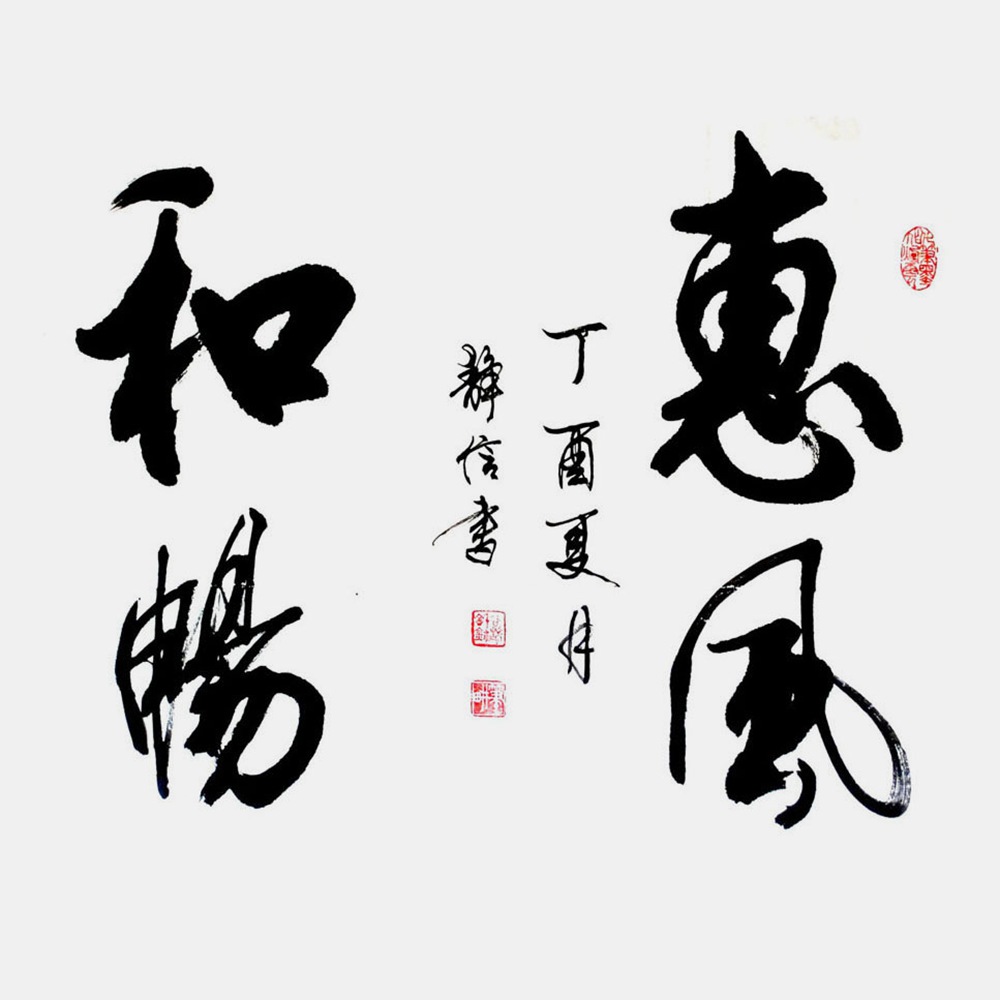 惠風
和暢
丁酉夏月
靜信書